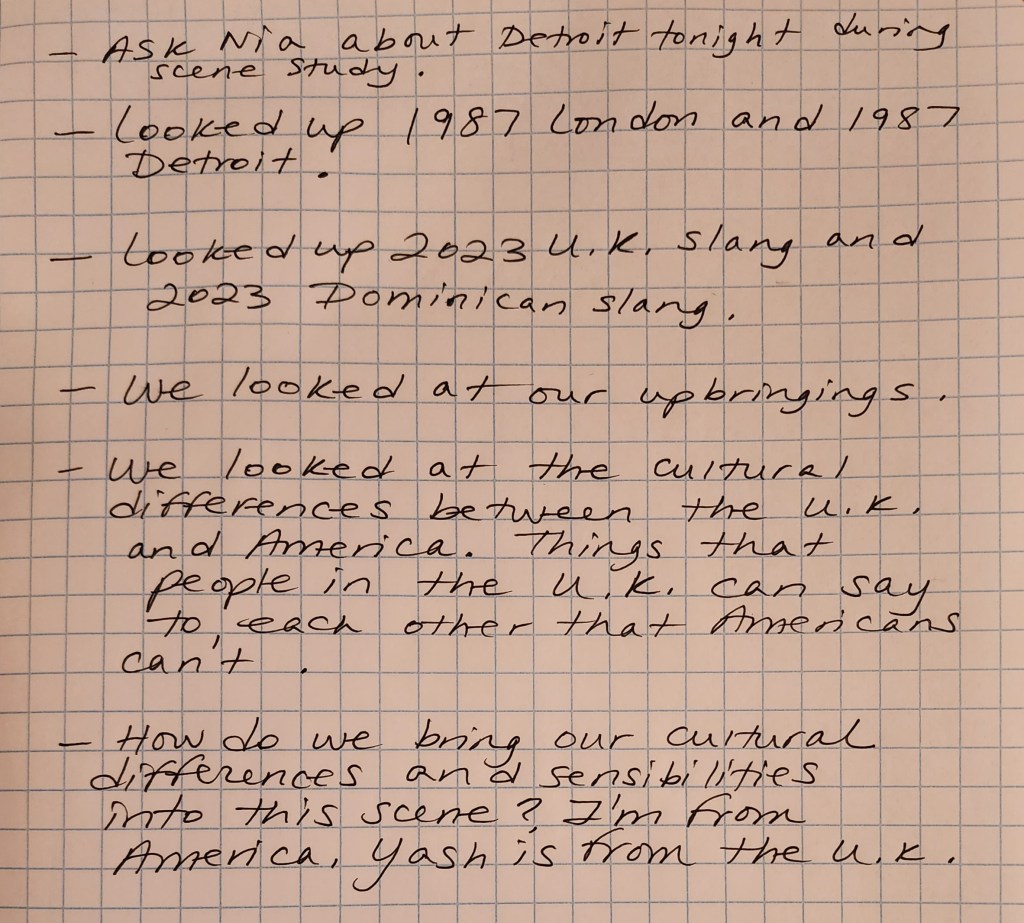 - Ask Nia about Detroit tonight during
scene study.
- Looked up 1987 London and 1987
Detroit.
- Looked up 2023 U.K. slang and
2023 Dominican slang.
- We looked at our upbringings.
- We looked at the cultural
differences between the U.K.
and America. Things that
people in the U.K. can say
to each other that Americans
can't.
- How do we bring our cultural
differences and sensibilities
into this scene? I'm from
America. Yash is from the U.K.